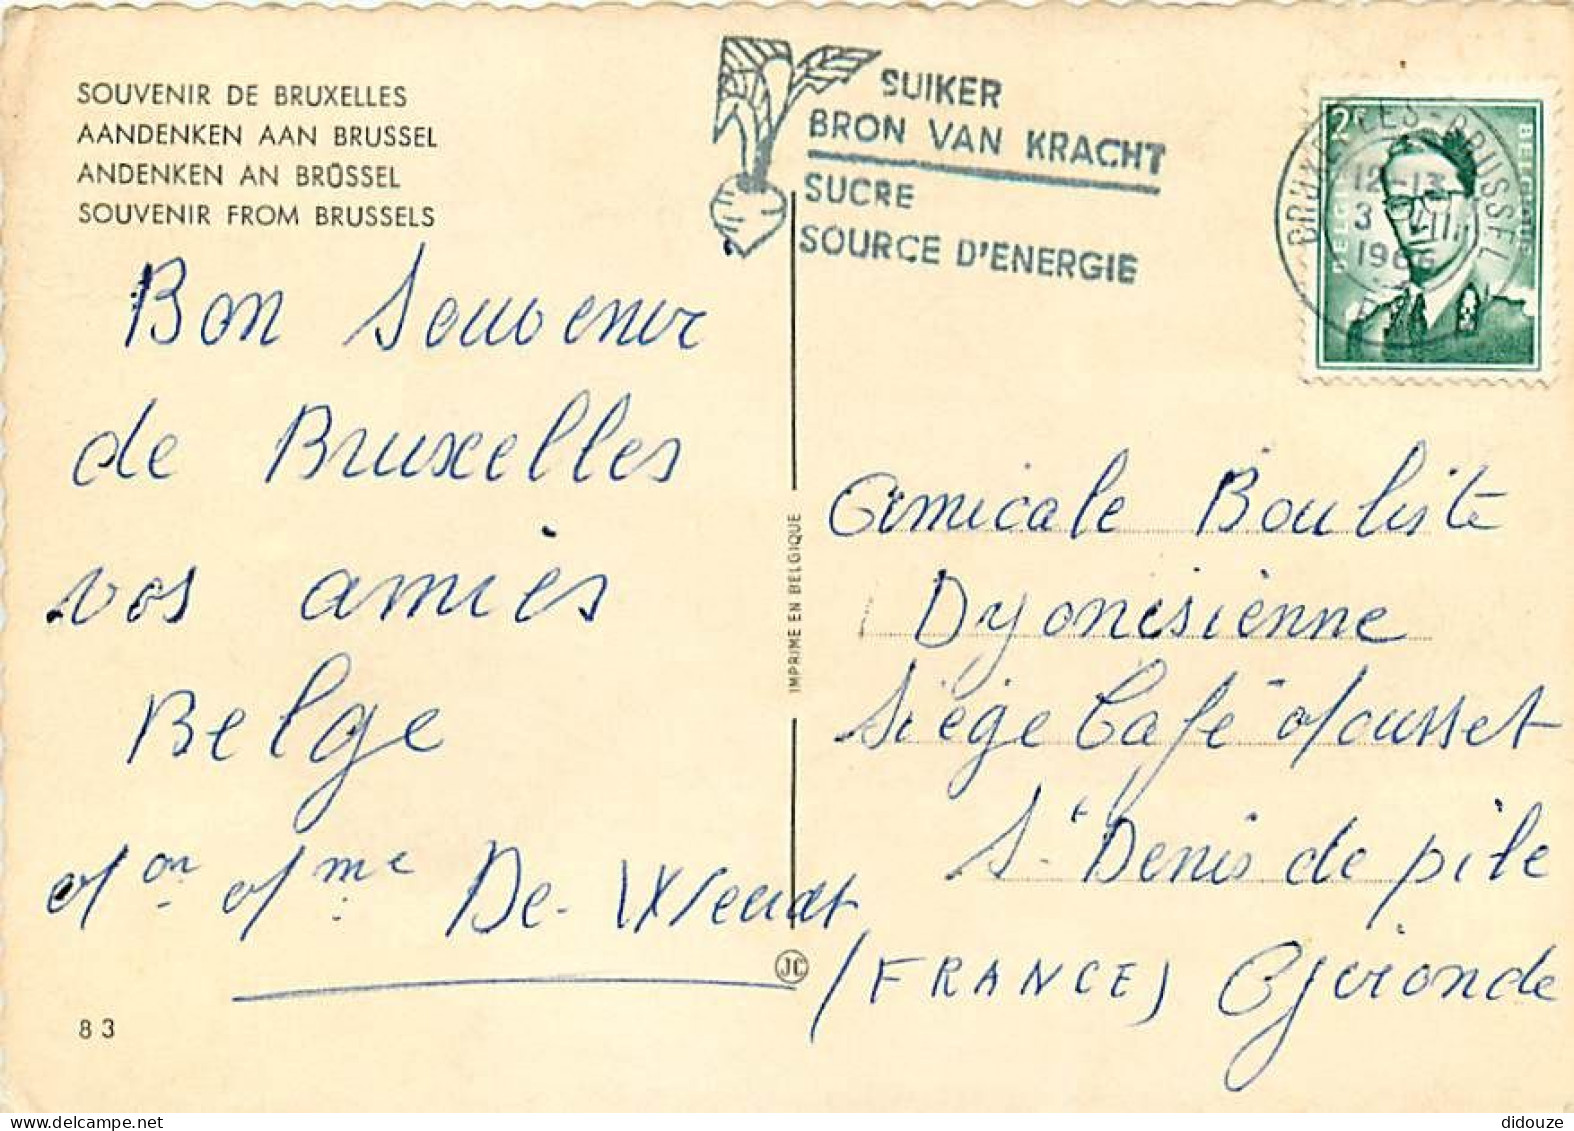 SOUVENIR DE BRUXELLES
AANDENKEN AAN BRUSSEL
ANDENKEN AN BRÜSSEL
SOUVENIR FROM BRUSSELS
SUIKER
BRON VAN KRACHT
SUCRE
SOURCE D'ENERGIE
BRUXELLES-BRUSSEL
12-13
3
1966
2F
BELGIE
BELGIQUE
Bon Souvenir
de Bruxelles
vos amies
Belge
Mr Mme De
IMPRIME EN BELGIQUE
JC
83
Amicale Bouliste
Dyonisienne
Siège Café Mousset
St Denis de pile
(FRANCE) Gironde
didouze